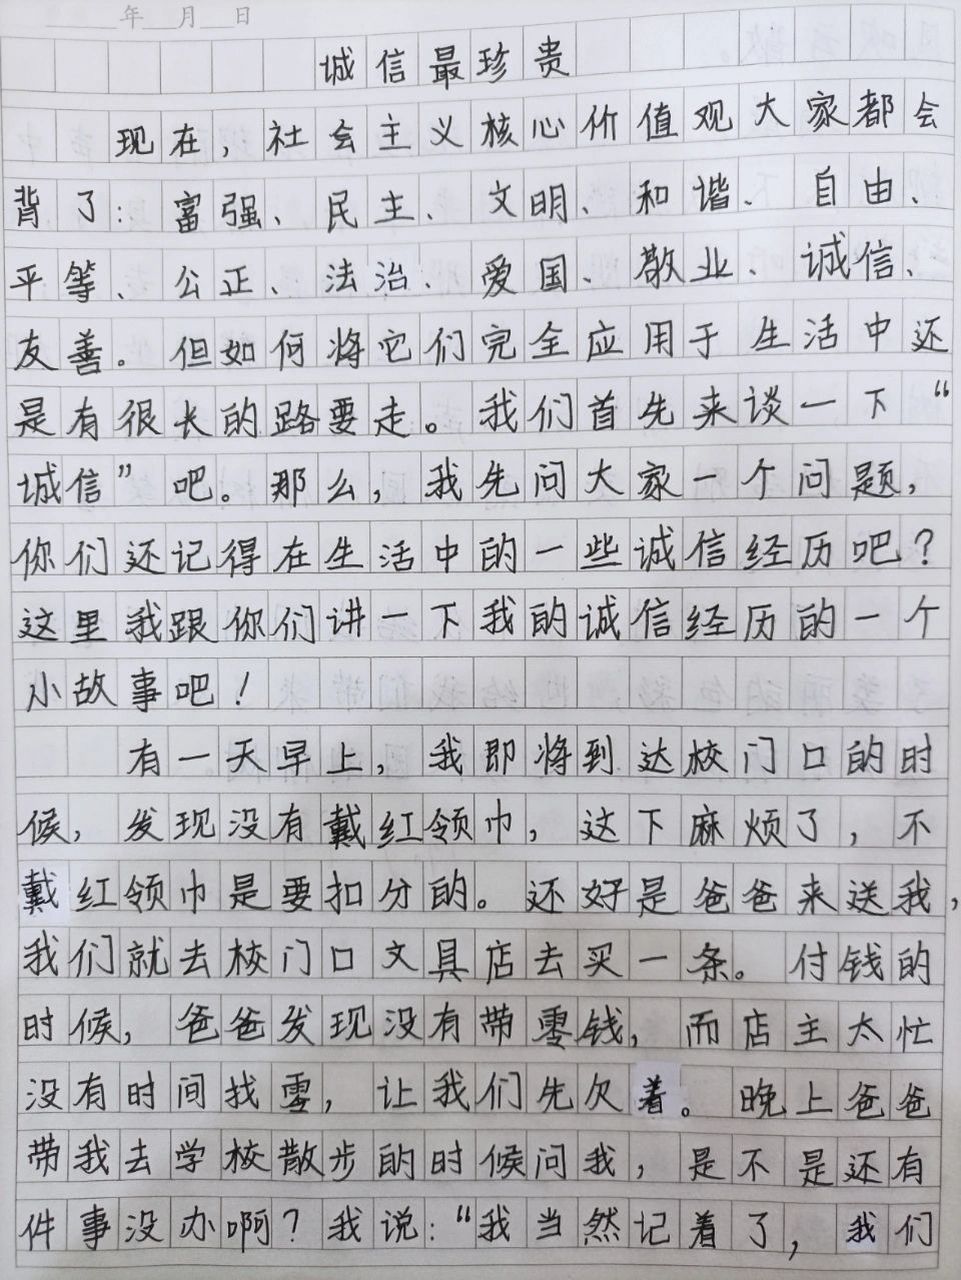 年 月 日
诚信最珍贵
现在，社会主义核心价值观大家都会
背了：富强、民主、文明、和谐、自由、
平等、公正、法治、爱国、敬业、诚信、
友善。但如何将它们完全应用于生活中还
是有很长的路要走。我们首先来谈一下“
诚信”吧。那么，我先问大家一个问题，
你们还记得在生活中的一些诚信经历吧？
这里我跟你们讲一下我的诚信经历的一个
小故事吧！
有一天早上，我即将到达校门口的时
候，发现没有戴红领巾，这下麻烦了，不
戴红领巾是要扣分的。还好是爸爸来送我，
我们就去校门口文具店去买一条。付钱的
时候，爸爸发现没有带零钱，而店主太忙
没有时间找零，让我们先欠着。晚上爸爸
带我去学校散步的时候问我，是不是还有
件事没办啊？我说：“我当然记着了，我们